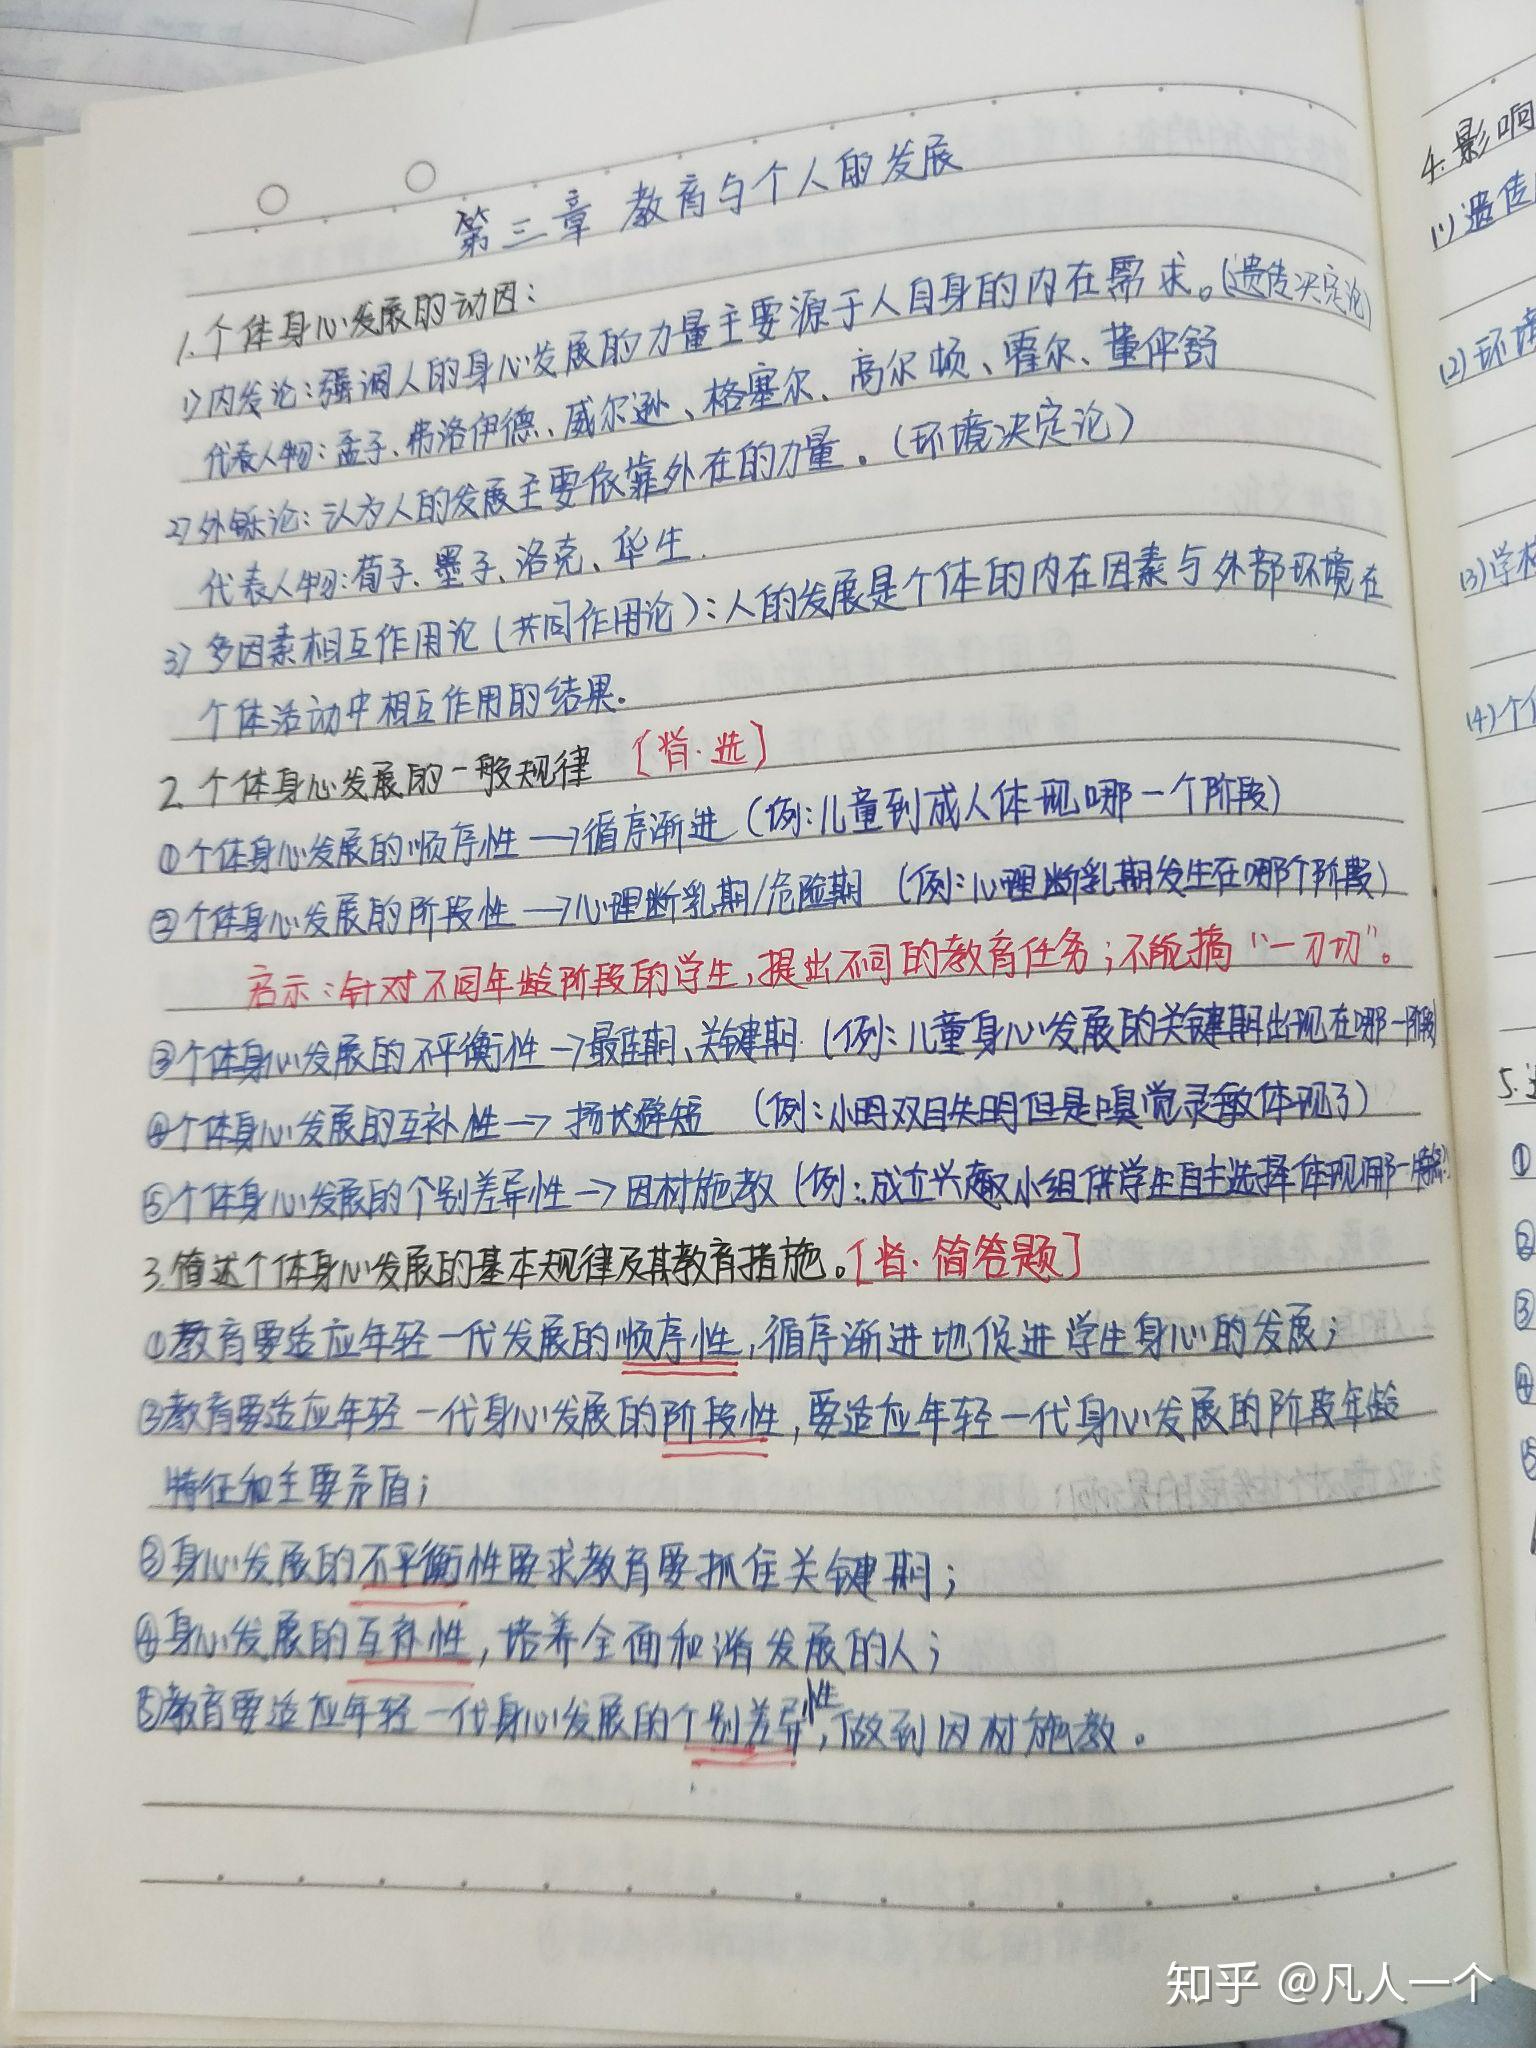 第三章 教育与个人的发展
1.个体身心发展的动因：
1)内发论：强调人的身心发展的力量主要源于人自身的内在需求。(遗传决定论)
代表人物：孟子、弗洛伊德、威尔逊、格塞尔、高尔顿、霍尔、董仲舒
2)外铄论：认为人的发展主要依靠外在的力量。(环境决定论)
代表人物：荀子、墨子、洛克、华生.
3)多因素相互作用论(共同作用论)：人的发展是个体的内在因素与外部环境在
个体活动中相互作用的结果.
2.个体身心发展的一般规律 [背·选]
①个体身心发展的顺序性→循序渐进 (例：儿童到成人体现哪一个阶段)
②个体身心发展的阶段性→心理断乳期/危险期 (例：心理断乳期发生在哪个阶段)
启示：针对不同年龄阶段的学生，提出不同的教育任务；不能搞“一刀切”。
③个体身心发展的不平衡性→最佳期、关键期. (例：儿童身心发展的关键期出现在哪一阶段)
④个体身心发展的互补性→扬长避短 (例：小明双目失明但是嗅觉灵敏体现了)
⑤个体身心发展的个别差异性→因材施教 (例：成立兴趣小组供学生自主选择体现哪一特点)
3.简述个体身心发展的基本规律及其教育措施。[背·简答题]
①教育要适应年轻一代发展的顺序性，循序渐进地促进学生身心的发展；
②教育要适应年轻一代身心发展的阶段性，要适应年轻一代身心发展的阶段年龄
特征和主要矛盾；
③身心发展的不平衡性要求教育要抓住关键期；
④身心发展的互补性，培养全面和谐发展的人；
⑤教育要适应年轻一代身心发展的个别差异性，做到因材施教。
4.影响
1)遗传
(2)环境
(3)学校
(4)个
5.
①
②
③
④
⑤
知乎 @凡人一个